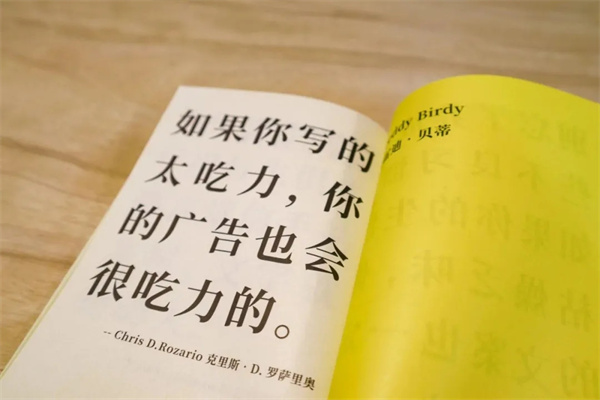 如果你写的
太吃力，你
的广告也会
很吃力的。
-- Chris D.Rozario 克里斯·D. 罗萨里奥
ddy Birdy
迪·贝蒂